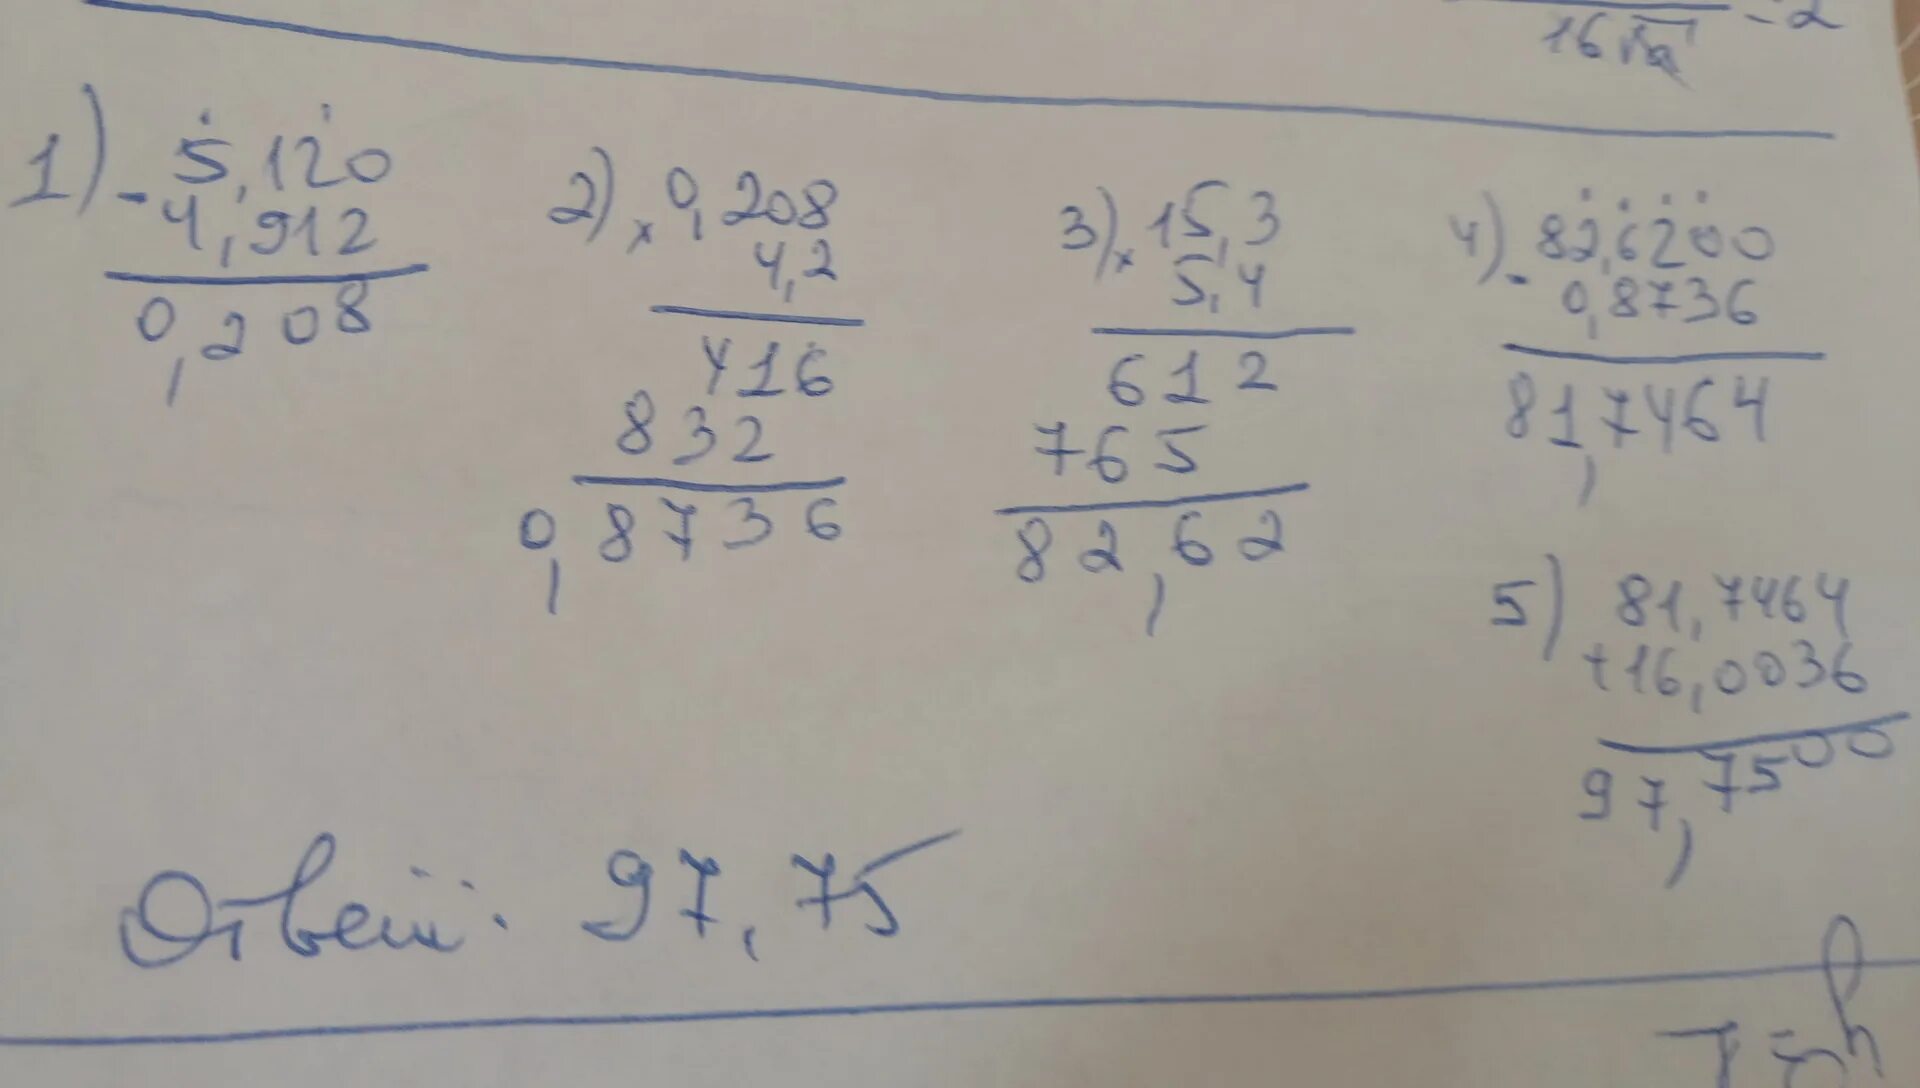 16√a - 2
1) - 5,120
4,912
0,208
2) × 0,208
4,2
416
832
0,8736
3) × 15,3
5,4
612
765
82,62
4) - 82,6200
0,8736
81,7464
5) 81,7464
+ 16,0036
97,7500
Ответ: 97,75